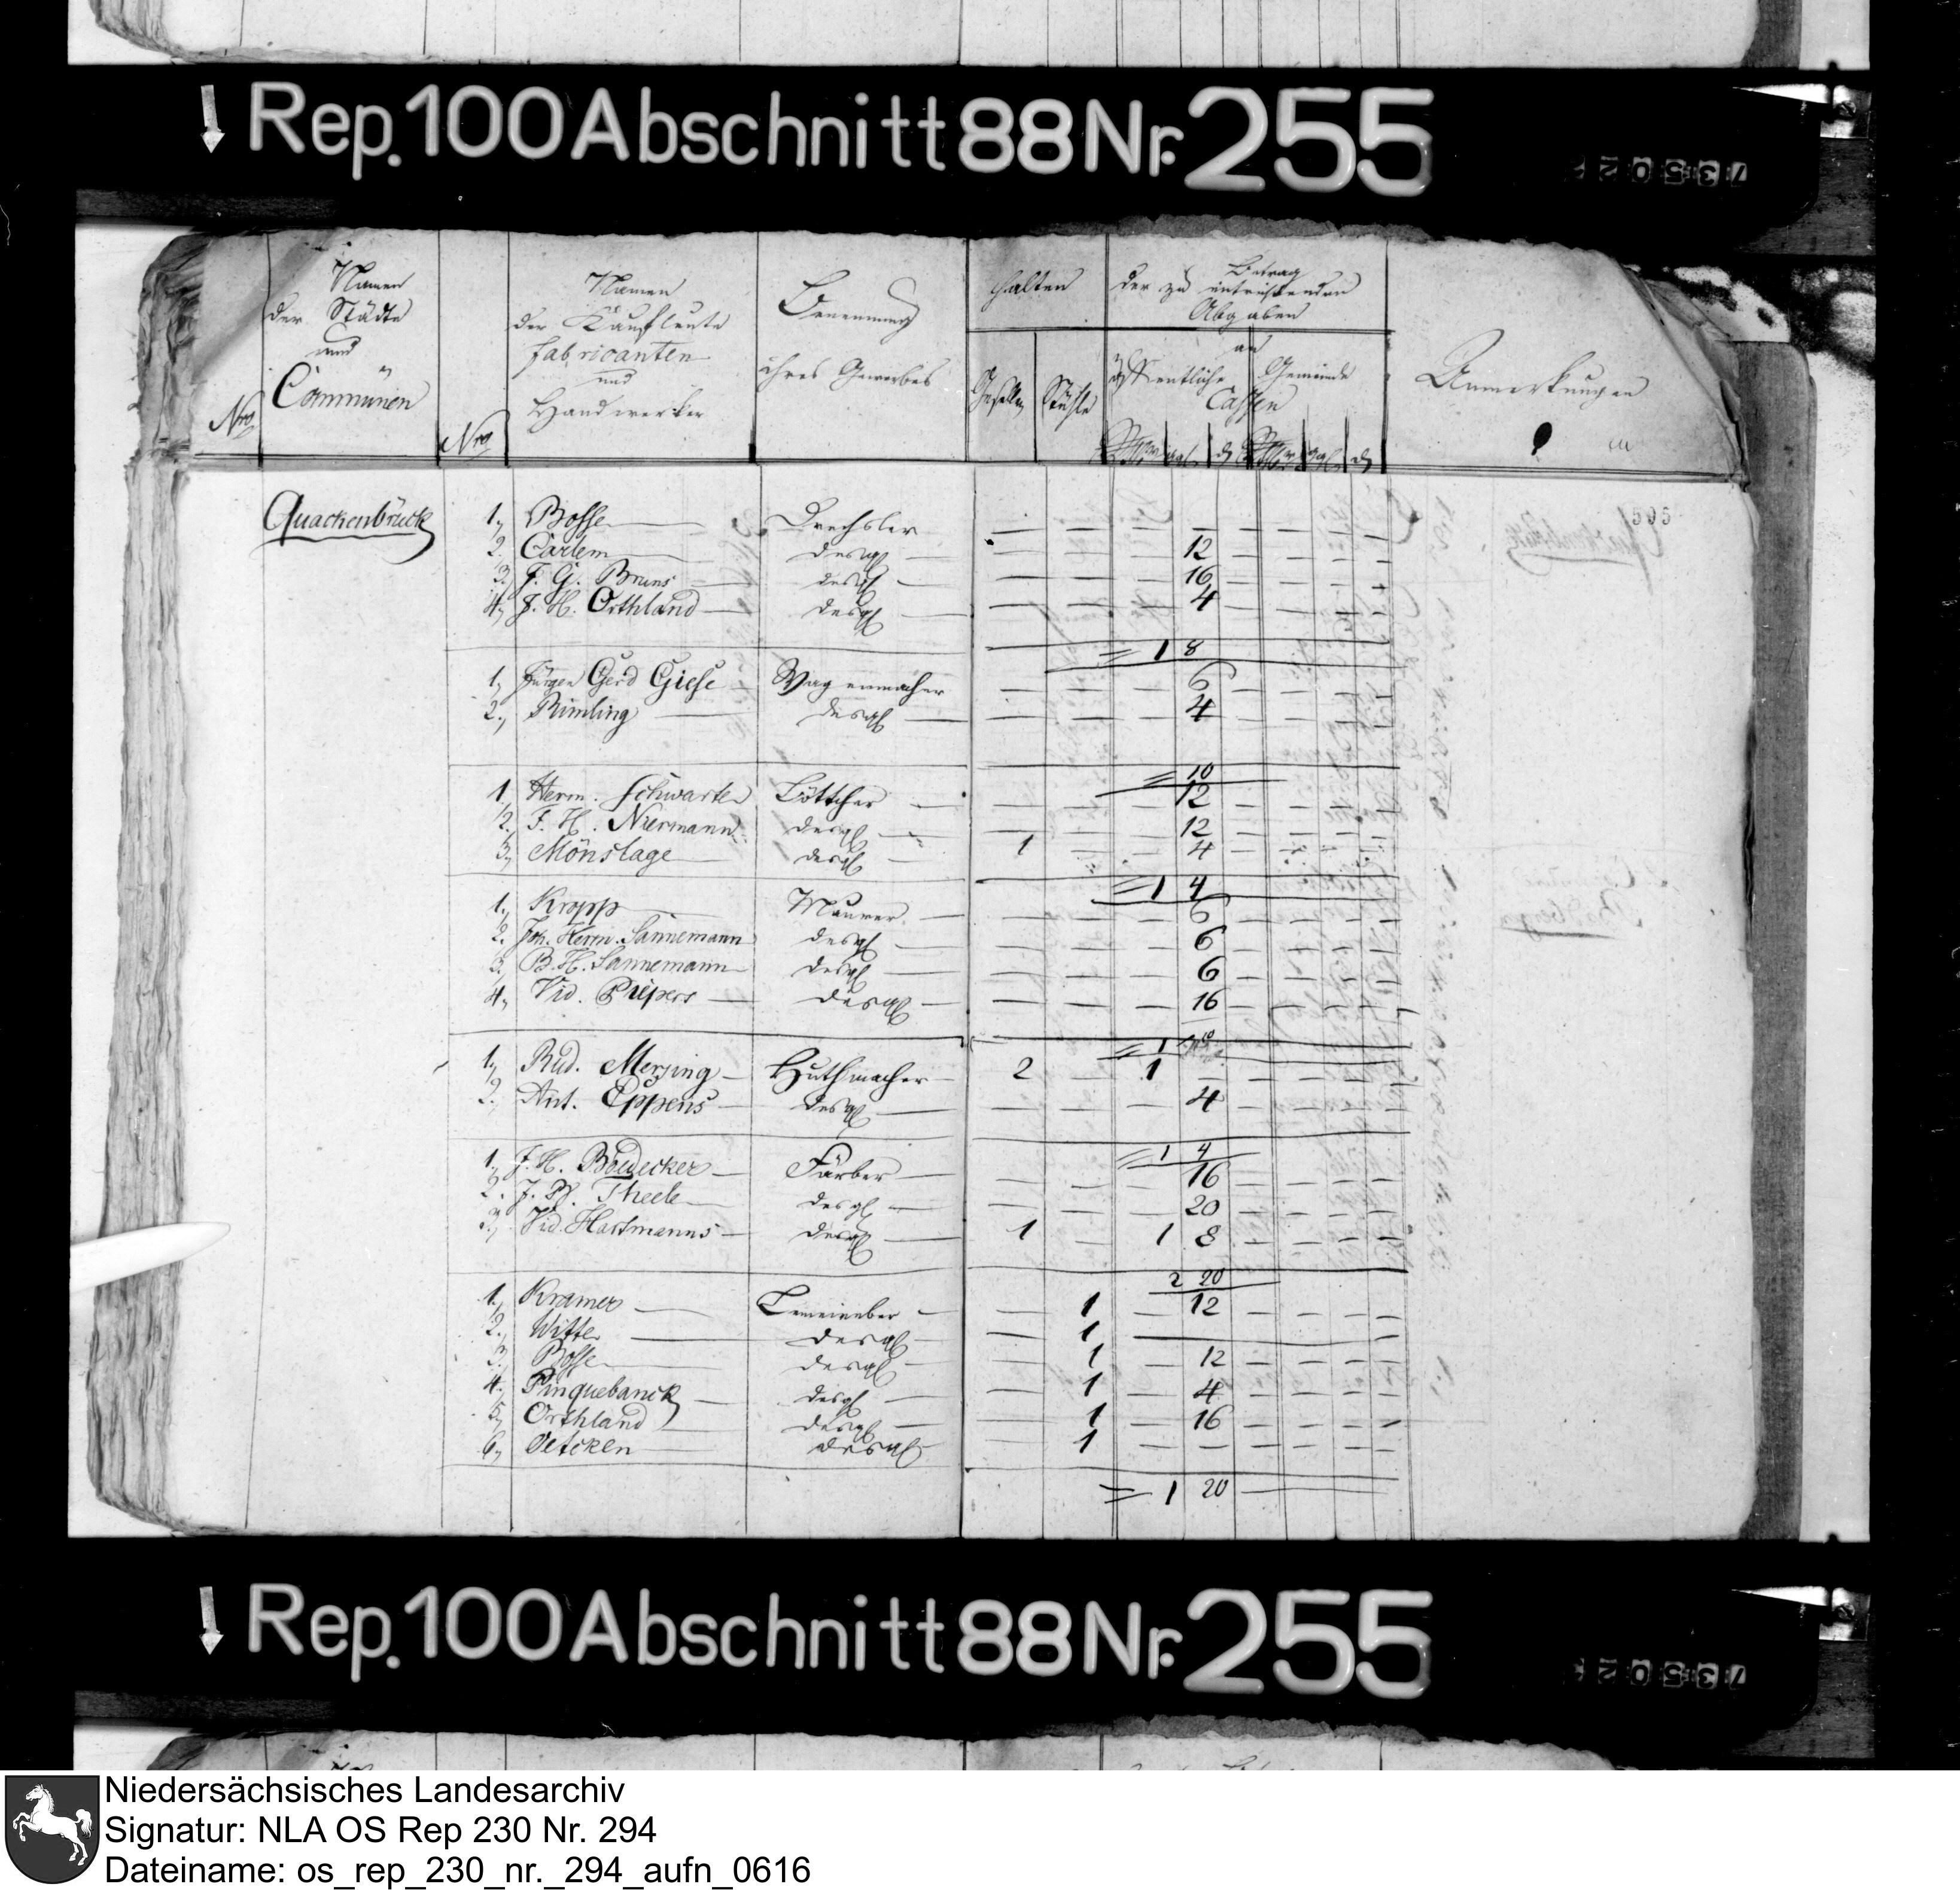 Rep. 100 Abschnitt 88 Nr. 255
735022
Nro
Namen
der Städte
und
Commünen
Nro
Namen
der Kaufleute
Fabricanten
und
Handwerker
Benennung
ihres Gewerbes
halten
Gesellen Stühle
Betrag
der zu entrichtenden
Abgaben
an
öffentliche Gemeinde
Cassen
ggl. d ggl. d
Anmerkungen
505
Quackenbrück
1, Bosse — Drechsler — — — — — — —
2. Carlem — desgl — — — — 12 — — — —
3, F. G. Bruns — desgl — — — — 16 — — — —
4, J. H. Orthland — desgl — — — — 4 — — — —
= 1 8
1, Jürgen Gerd Giese — Wagenmacher — — — 6 — — — —
2, Rimling — desgl — — — — 4 — — — —
= 10
1, Herm. Schwarte Böttcher — — — — 12 — — — —
2. F. H. Niermann desgl — — — — 12 — — — —
3, Mönstage — desgl — 1 — — 4 — — — —
= 1 4
1, Kropp — Maurer — — — — 6 — — — —
2. Joh. Herm. Sannemann desgl — — — — 6 — — — —
3. B. H. Sannemann — desgl — — — — 6 — — — —
4, Vid. Piepers — desgl — — — — 16 — — — —
= 1 10
1, Rud. Mersing — Huthmacher — 2 — 1 — — — — —
2. Ant. Eppens — desgl — — — — 4 — — — —
= 1 4
1, J. H. Boedecker — Färber — — — — 16 — — — —
2. J. H. Theele — desgl — — — — 20 — — — —
3, Vid. Hartmanns — desgl — 1 — 1 8 — — — —
2 20
1, Kramer — Leineweber — — 1 — 12 — — — —
2. Witte — desgl — — 1 —
3, Bosse — desgl — — 1 — 12 — — — —
4, Pinquebanck — desgl — — 1 — 4 — — — —
5, Orthland — desgl — — 1 — 16 — — — —
6, Oetcken — desgl — 1 — — — — — —
= 1 20
Rep. 100 Abschnitt 88 Nr. 255
735022
Niedersächsisches Landesarchiv
Signatur: NLA OS Rep 230 Nr. 294
Dateiname: os_rep_230_nr._294_aufn_0616